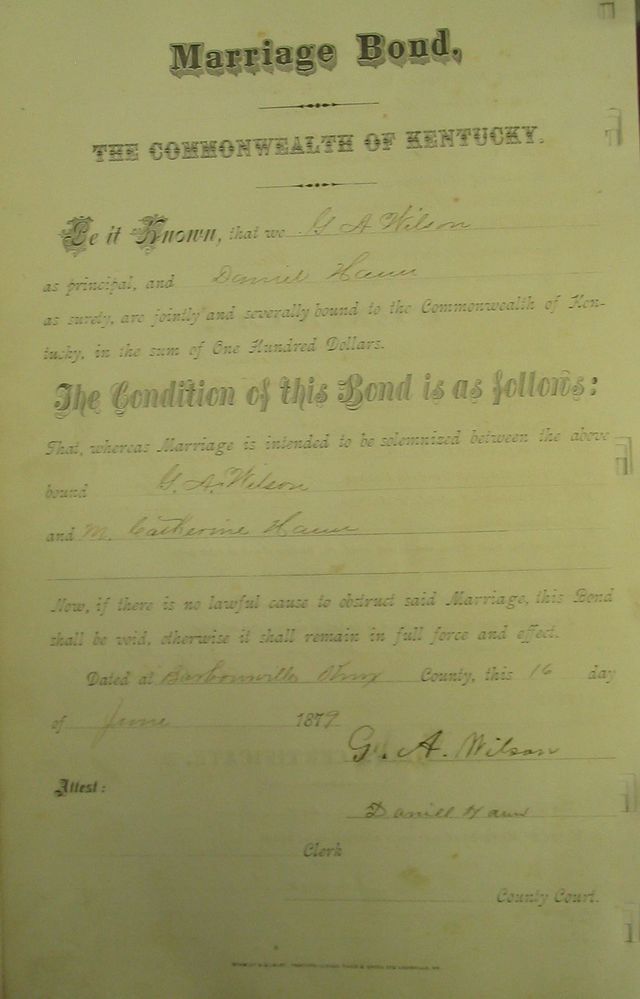 Marriage Bond.
THE COMMONWEALTH OF KENTUCKY.
Be it Known, that we G A Wilson
as principal, and Daniel Haun
as surety, are jointly and severally bound to the Commonwealth of Ken-
tucky, in the sum of One Hundred Dollars.
The Condition of this Bond is as follows:
That, whereas Marriage is intended to be solemnized between the above
bound G. A. Wilson
and M. Catherine Haun
Now, if there is no lawful cause to obstruct said Marriage, this Bond
shall be void, otherwise it shall remain in full force and effect.
Dated at Barbourville Knox County, this 16 day
of June 1879
G. A. Wilson
Attest:
Daniel Haun
Clerk
County Court.